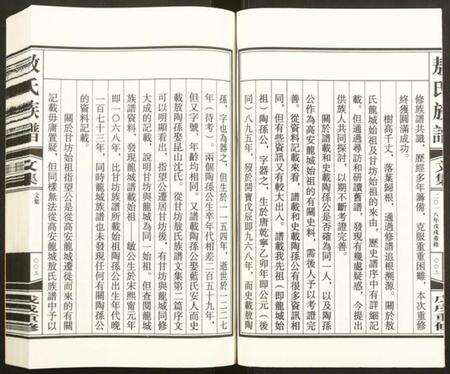 敖氏族譜
文集
二〇一八年戊戌重修
戊戌重修
修族譜共識，歷經多年籌備，克服重重困難，本次重修
終獲圓滿成功。
樹高千丈，落葉歸根，通過修譜追根溯源，關於敖
氏龍城始祖及甘坊始祖的來由，歷史譜序中有詳細記
載。但通過尋訪和研讀舊譜，發現有幾處疑惑，今提出
供族人共同探討，以期不斷考證完善。
關於譜載和史載陶孫公是否為同一人，以及陶孫
公作為高安龍城始祖的有關史料，需後人予以考證完
善。從資料記載來看，譜載和史載陶孫公有很多資訊相
同，但有些資訊又有較大出入。譜載我先祖（即龍城始
祖）陶孫公，字器之，生於唐乾寧乙卯年即公元（後
同）八九五年，歿於開寶戊辰即九六八年，而史載敖陶
孫，字也為器之，但生於一一五四年，逝世於一二二七
年（待考）。兩個陶孫公生卒年代相差二百五十九年，
但又字號、年齡均相同。又譜載陶孫公娶藍氏安人而史
載敖陶孫娶昆山沈氏。從甘坊敖族譜文集第一篇序文
可以明顯看出，指望公遷居甘坊後，有甘坊與龍城同修
大成的記載，說明甘坊與龍城為同一始祖。但查閱龍城
族譜資料，發現龍城譜載始祖 敏公生於宋熙甯元年
即一〇六八年，比甘坊族譜所載始祖陶孫公出生年代晚
一百七十三年，同時龍城族譜也未發現任何有關陶孫公
的資料記載。
關於甘坊始祖指望公是從高安龍城遷徙而來的有關
記載毋庸置疑，但同樣無法從高安龍城敖氏族譜中予以
敖氏族譜
文集
文集
戊戌重修